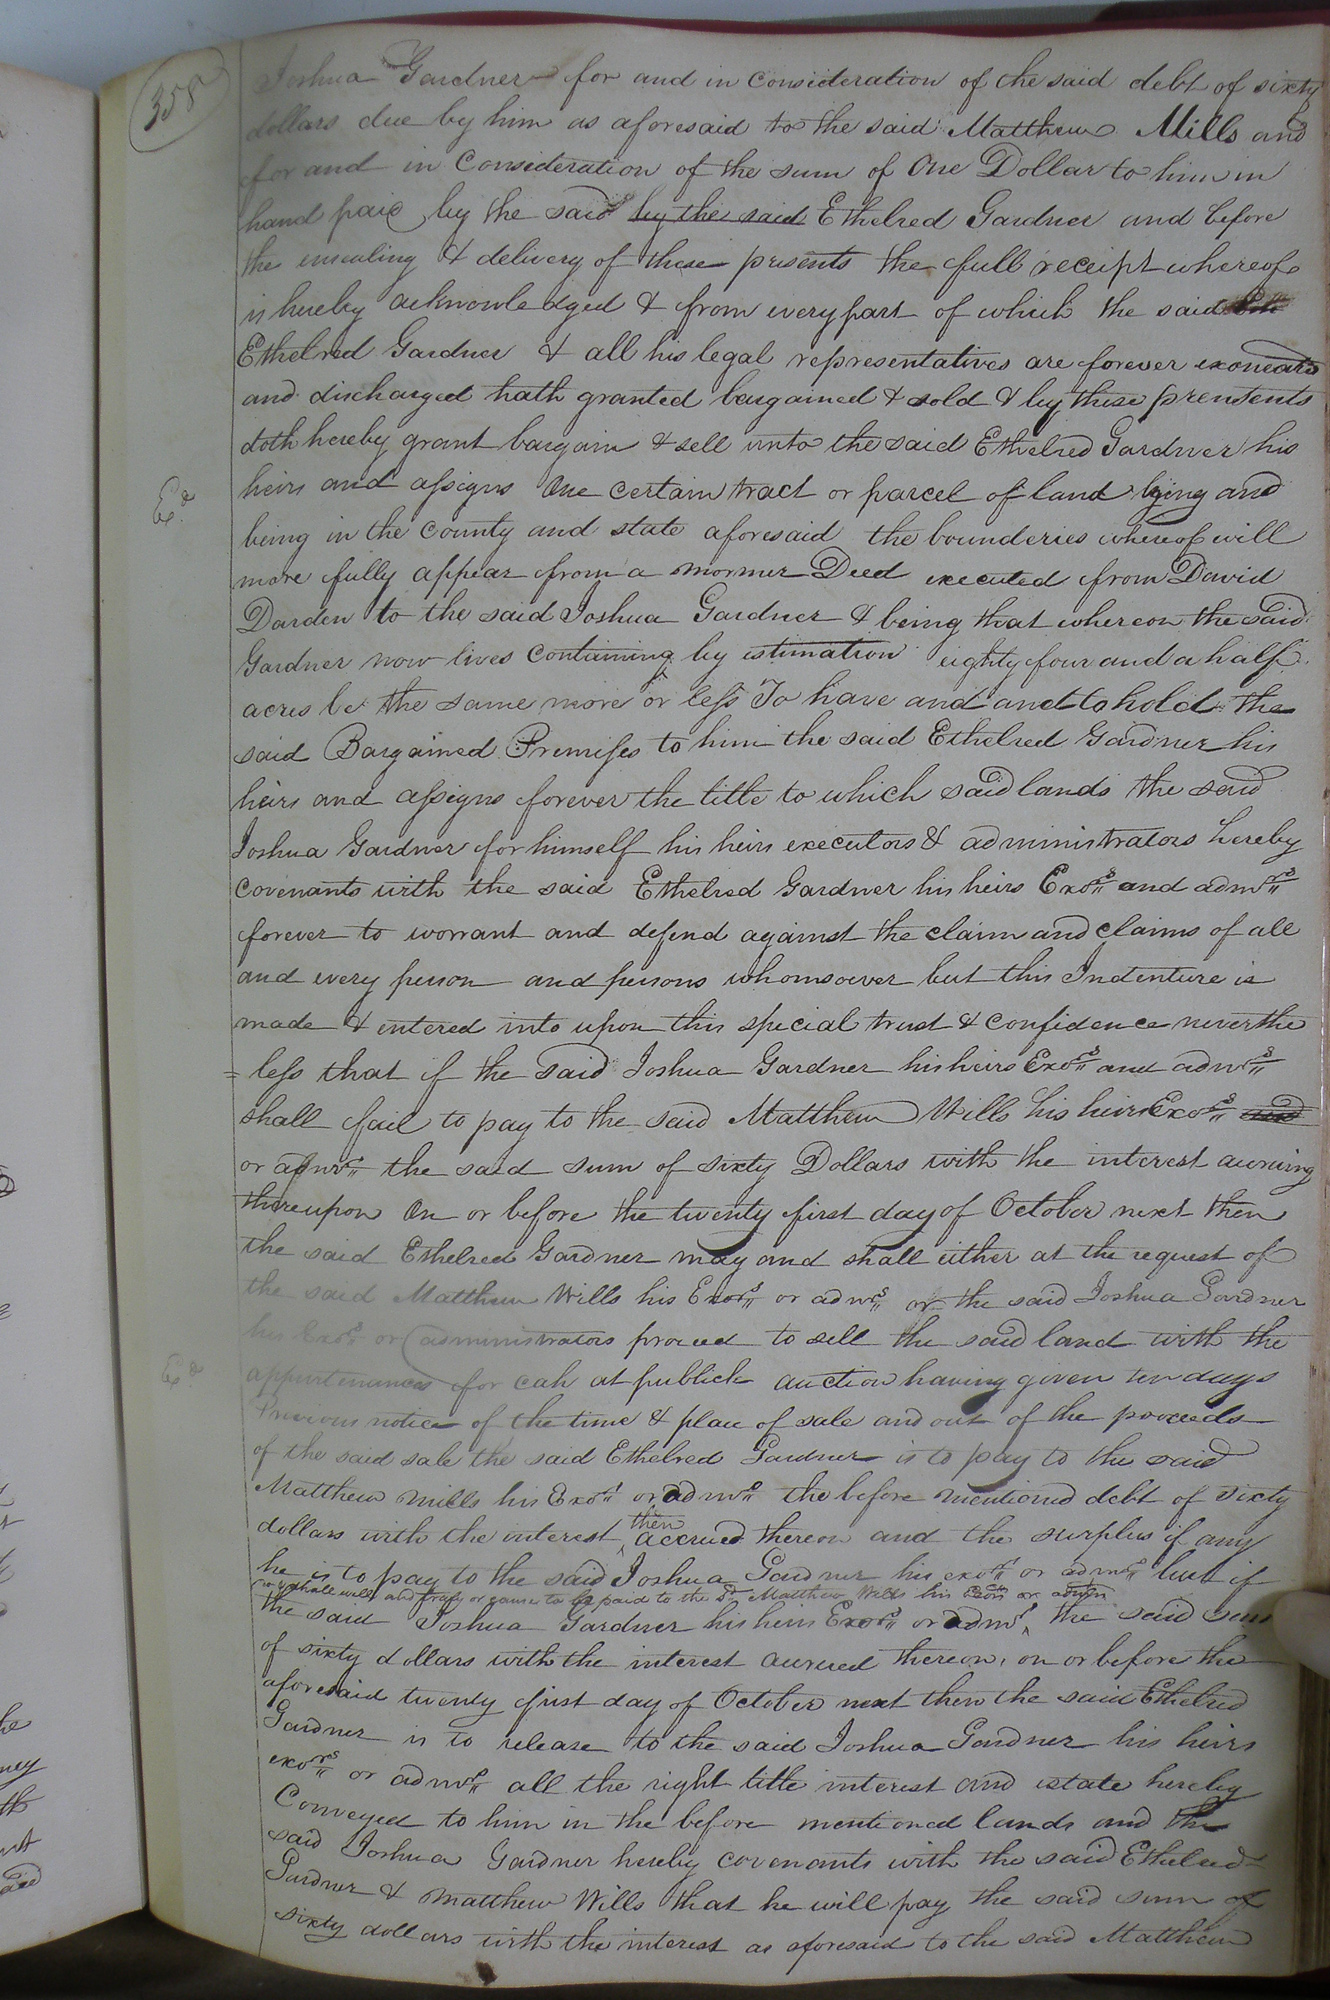 358
Joshua Gardner for and in consideration of the said debt of sixty
dollars due by him as aforesaid to the said Matthew Mills and
for and in Consideration of the sum of One Dollar to him in
hand paid by the said by the said Ethelred Gardner and before
the ensealing & delivery of these presents the full receipt whereof
is hereby acknowledged & from every part of which the said
Ethelred Gardner & all his legal representatives are forever
and discharged hath granted bargained & sold & by these presents
doth hereby grant bargain & sell unto the said Ethelred Gardner his
heirs and assigns One certain tract or parcel of land lying and
being in the county and state aforesaid the bounderies whereof will
more fully appear from a Deed executed from David
Darden to the said Joshua Gardner & being that whereon the said
Gardner now lives containing by estimation eighty four and a half
acres be the same more or less To have and and to hold the
said Bargained Premises to him the said Ethelred Gardner his
heirs and assigns forever the title to which said lands the said
Joshua Gardner for himself his heirs executors & administrators hereby
covenants with the said Ethelred Gardner his heirs Exors and admrs
forever to warrant and defend against the claim and claims of all
and every person and persons whomsoever but this Indenture is
made & entered into upon this special trust & confidence neverthe
= less that if the said Joshua Gardner his heirs Exors and admrs
shall fail to pay to the said Matthew Wills his heirs Exors and
or admrs the said sum of sixty Dollars with the interest accruing
thereupon On or before the twenty first day of October next then
the said Ethelred Gardner may and shall either at the request of
the said Matthew Wills his Exors or admrs or the said Joshua Gardner
his Exors or administrators proceed to sell the said land with the
appurtenances for cah at publick auction having given ten days
Previous notice of the time & place of sale and out of the proceeds
of the said sale the said Ethelred Gardner is to pay to the said
Matthew Mills his Exors or admrs the before mentioned debt of sixty
dollars with the interest then accrued thereon and the surplus if any
he is to pay to the said Joshua Gardner his exors or admrs but if
shall well and truly or cause to be paid to the sd Matthew Wills his Exors or admrs
the said Joshua Gardner his heirs Exors or admrs the said sum
of sixty dollars with the interest accrued thereon, on or before the
aforesaid twenty first day of October next then the said Ethelred
Gardner is to release to the said Joshua Gardner his heirs
exors or admrs all the right title interest and estate hereby
Conveyed to him in the before mentioned lands and the
said Joshua Gardner hereby covenants with the said Ethelred
Gardner & Matthew Wills that he will pay the said sum of
sixty dollars with the interest as aforesaid to the said Matthew